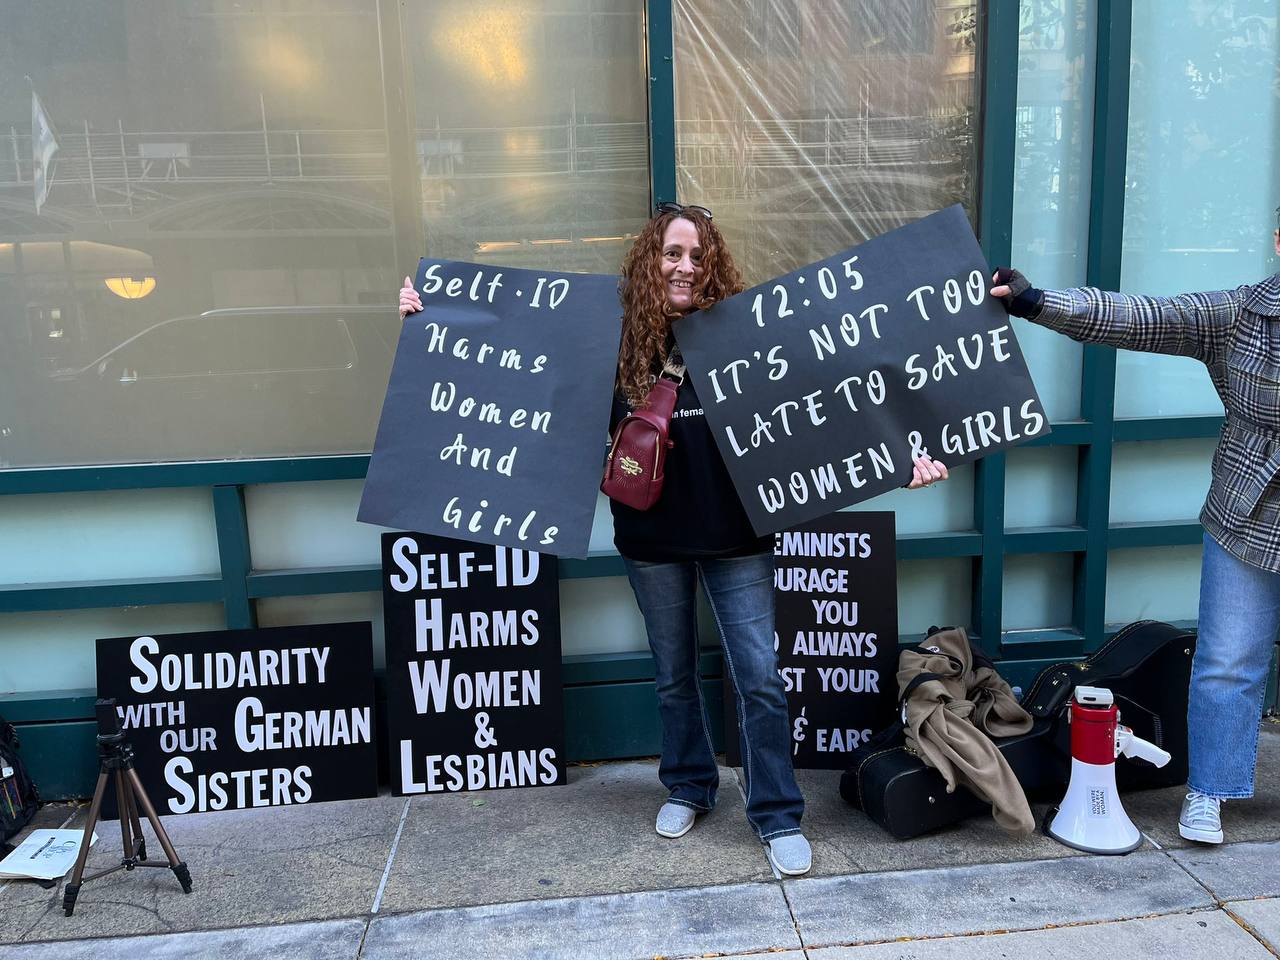 Self-ID
Harms
Women
And
Girls
12:05
IT'S NOT TOO
LATE TO SAVE
WOMEN & GIRLS
SOLIDARITY
WITH
OUR GERMAN
SISTERS
SELF-ID
HARMS
WOMEN
&
LESBIANS
EMINISTS
OURAGE
YOU
ALWAYS
ST YOUR
& EARS